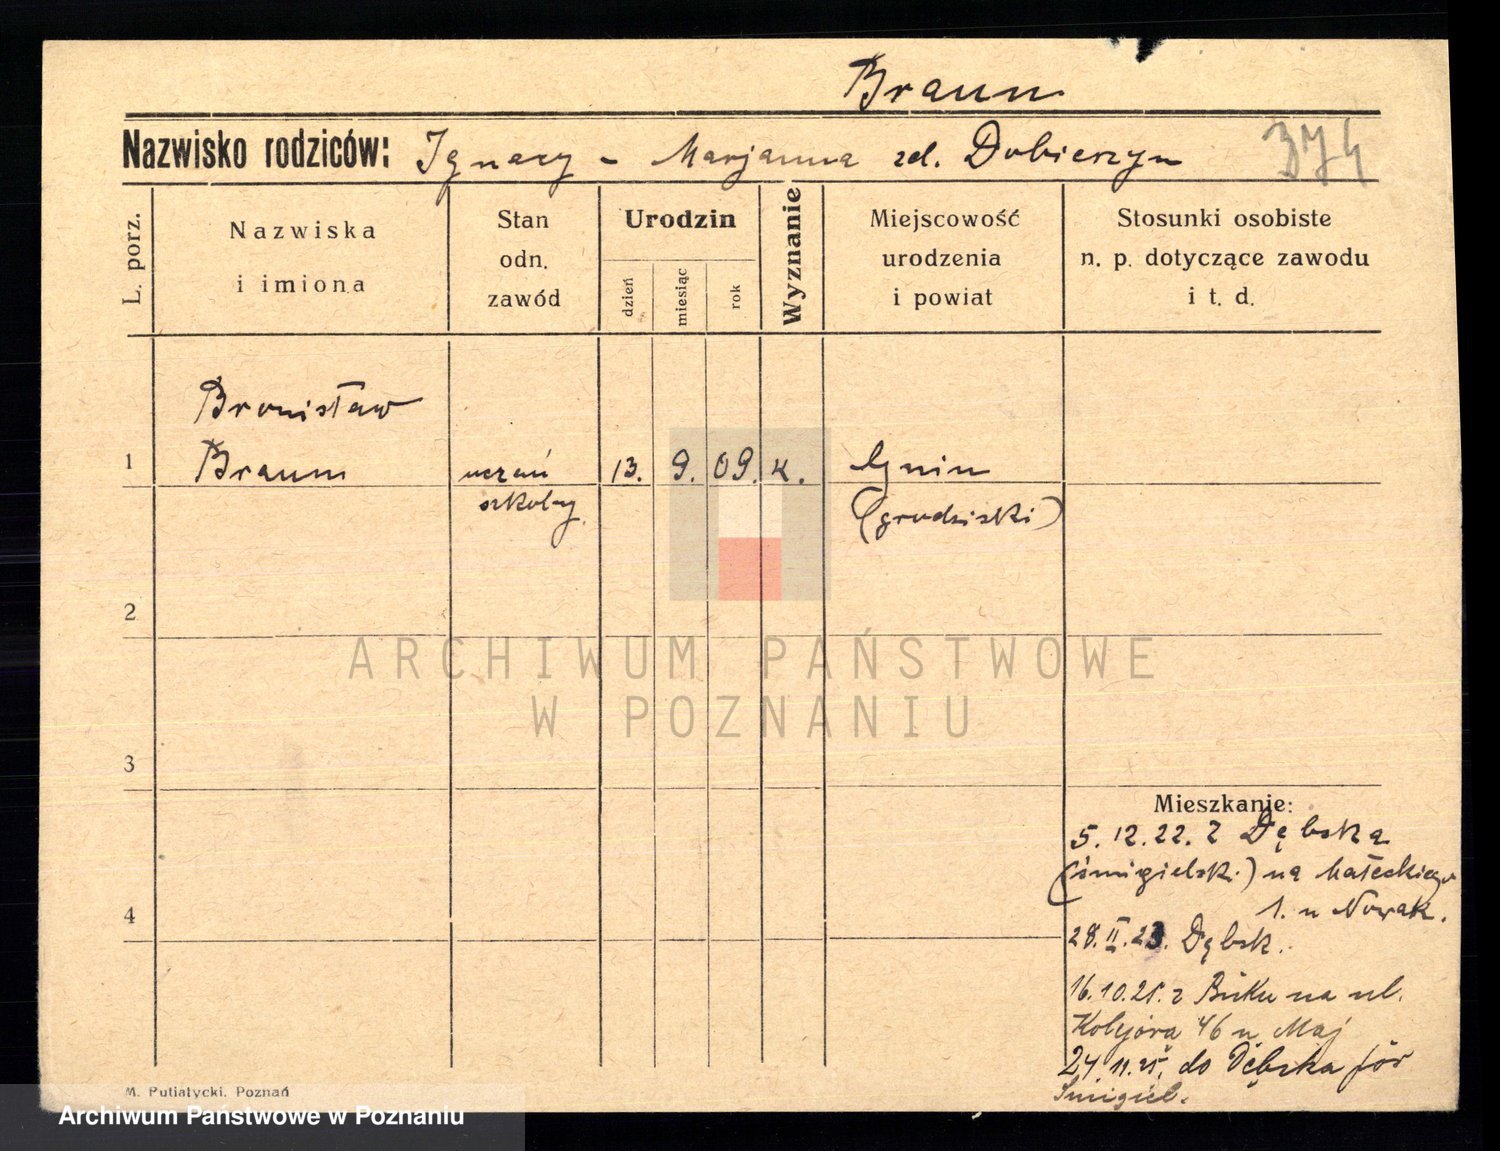 Braun
Nazwisko rodziców: Ignacy - Marjanna zd. Dobierzyn 374
L. porz.
Nazwiska
i imiona
Stan
odn.
zawód
Urodzin
dzień
miesiąc
rok
Wyznanie
Miejscowość
urodzenia
i powiat
Stosunki osobiste
n. p. dotyczące zawodu
i t. d.
Bronisław
1 Braun uczeń 13. 9. 09. k. Gnin
szkolny (grodziski)
2
3
4
Mieszkanie:
5.12.22. z Dębska
(śmigielsk.) na Małeckiego
1. u Nowak.
28.II.23. Dębsk.
16.10.25. z Buku na ul.
46 u Maj
24.11.25. do Dębska
Śmigiel.
M. Putiatycki, Poznań
ARCHIWUM PAŃSTWOWE
W POZNANIU
Archiwum Państwowe w Poznaniu